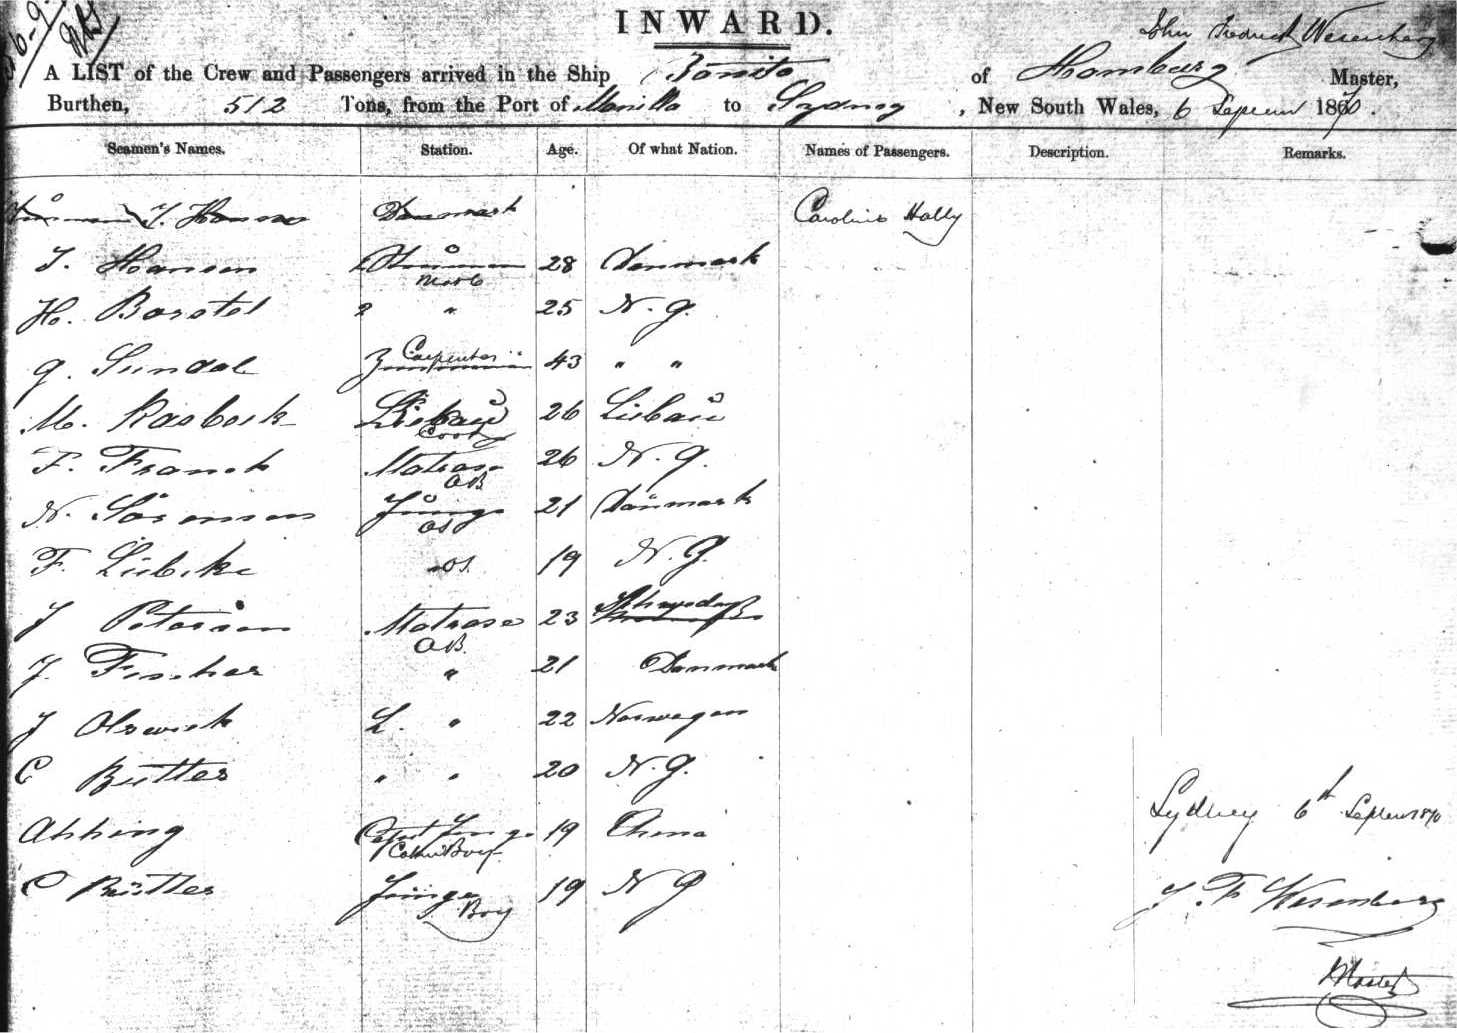 INWARD.
John Fredrick Wesenberg
A LIST of the Crew and Passengers arrived in the Ship Bonito of Hamburg Master,
Burthen, 512 Tons, from the Port of Manilla to Sydney, New South Wales, 6 1870.
Seamen's Names. Station. Age. Of what Nation. Names of Passengers. Description. Remarks.
J. Hansen Danmark Caroline Hally
J. Hansen 28 Danmark
Mate
H. Borstel 2 " 25 N. G.
Carpenter
G. Sundal Zimmermann 43 " "
M. Rasbock Liebau 26 Liebau
Cook
F. Franck Matrose 26 N. G.
AB
N. Sörensen Junge 21 Danmark
OS
F. Liebcke OS. 19 N. G.
J Petersen Matrose 23
AB.
J. Fischer " 21 Danmark
J Olswick L. " 22 Norwegen
C Bütter " " 20 N. G.
Ahhing 19 China
Cabin Boy
C Bütter Junge 19 N G
Boy
Sydney 6th 1870
J. F Wesenberg
Master